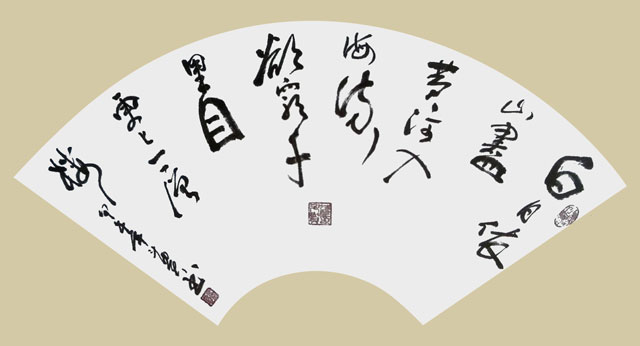 白日依
山盡
黄河入
海流
欲窮千
里目
更上一層
樓